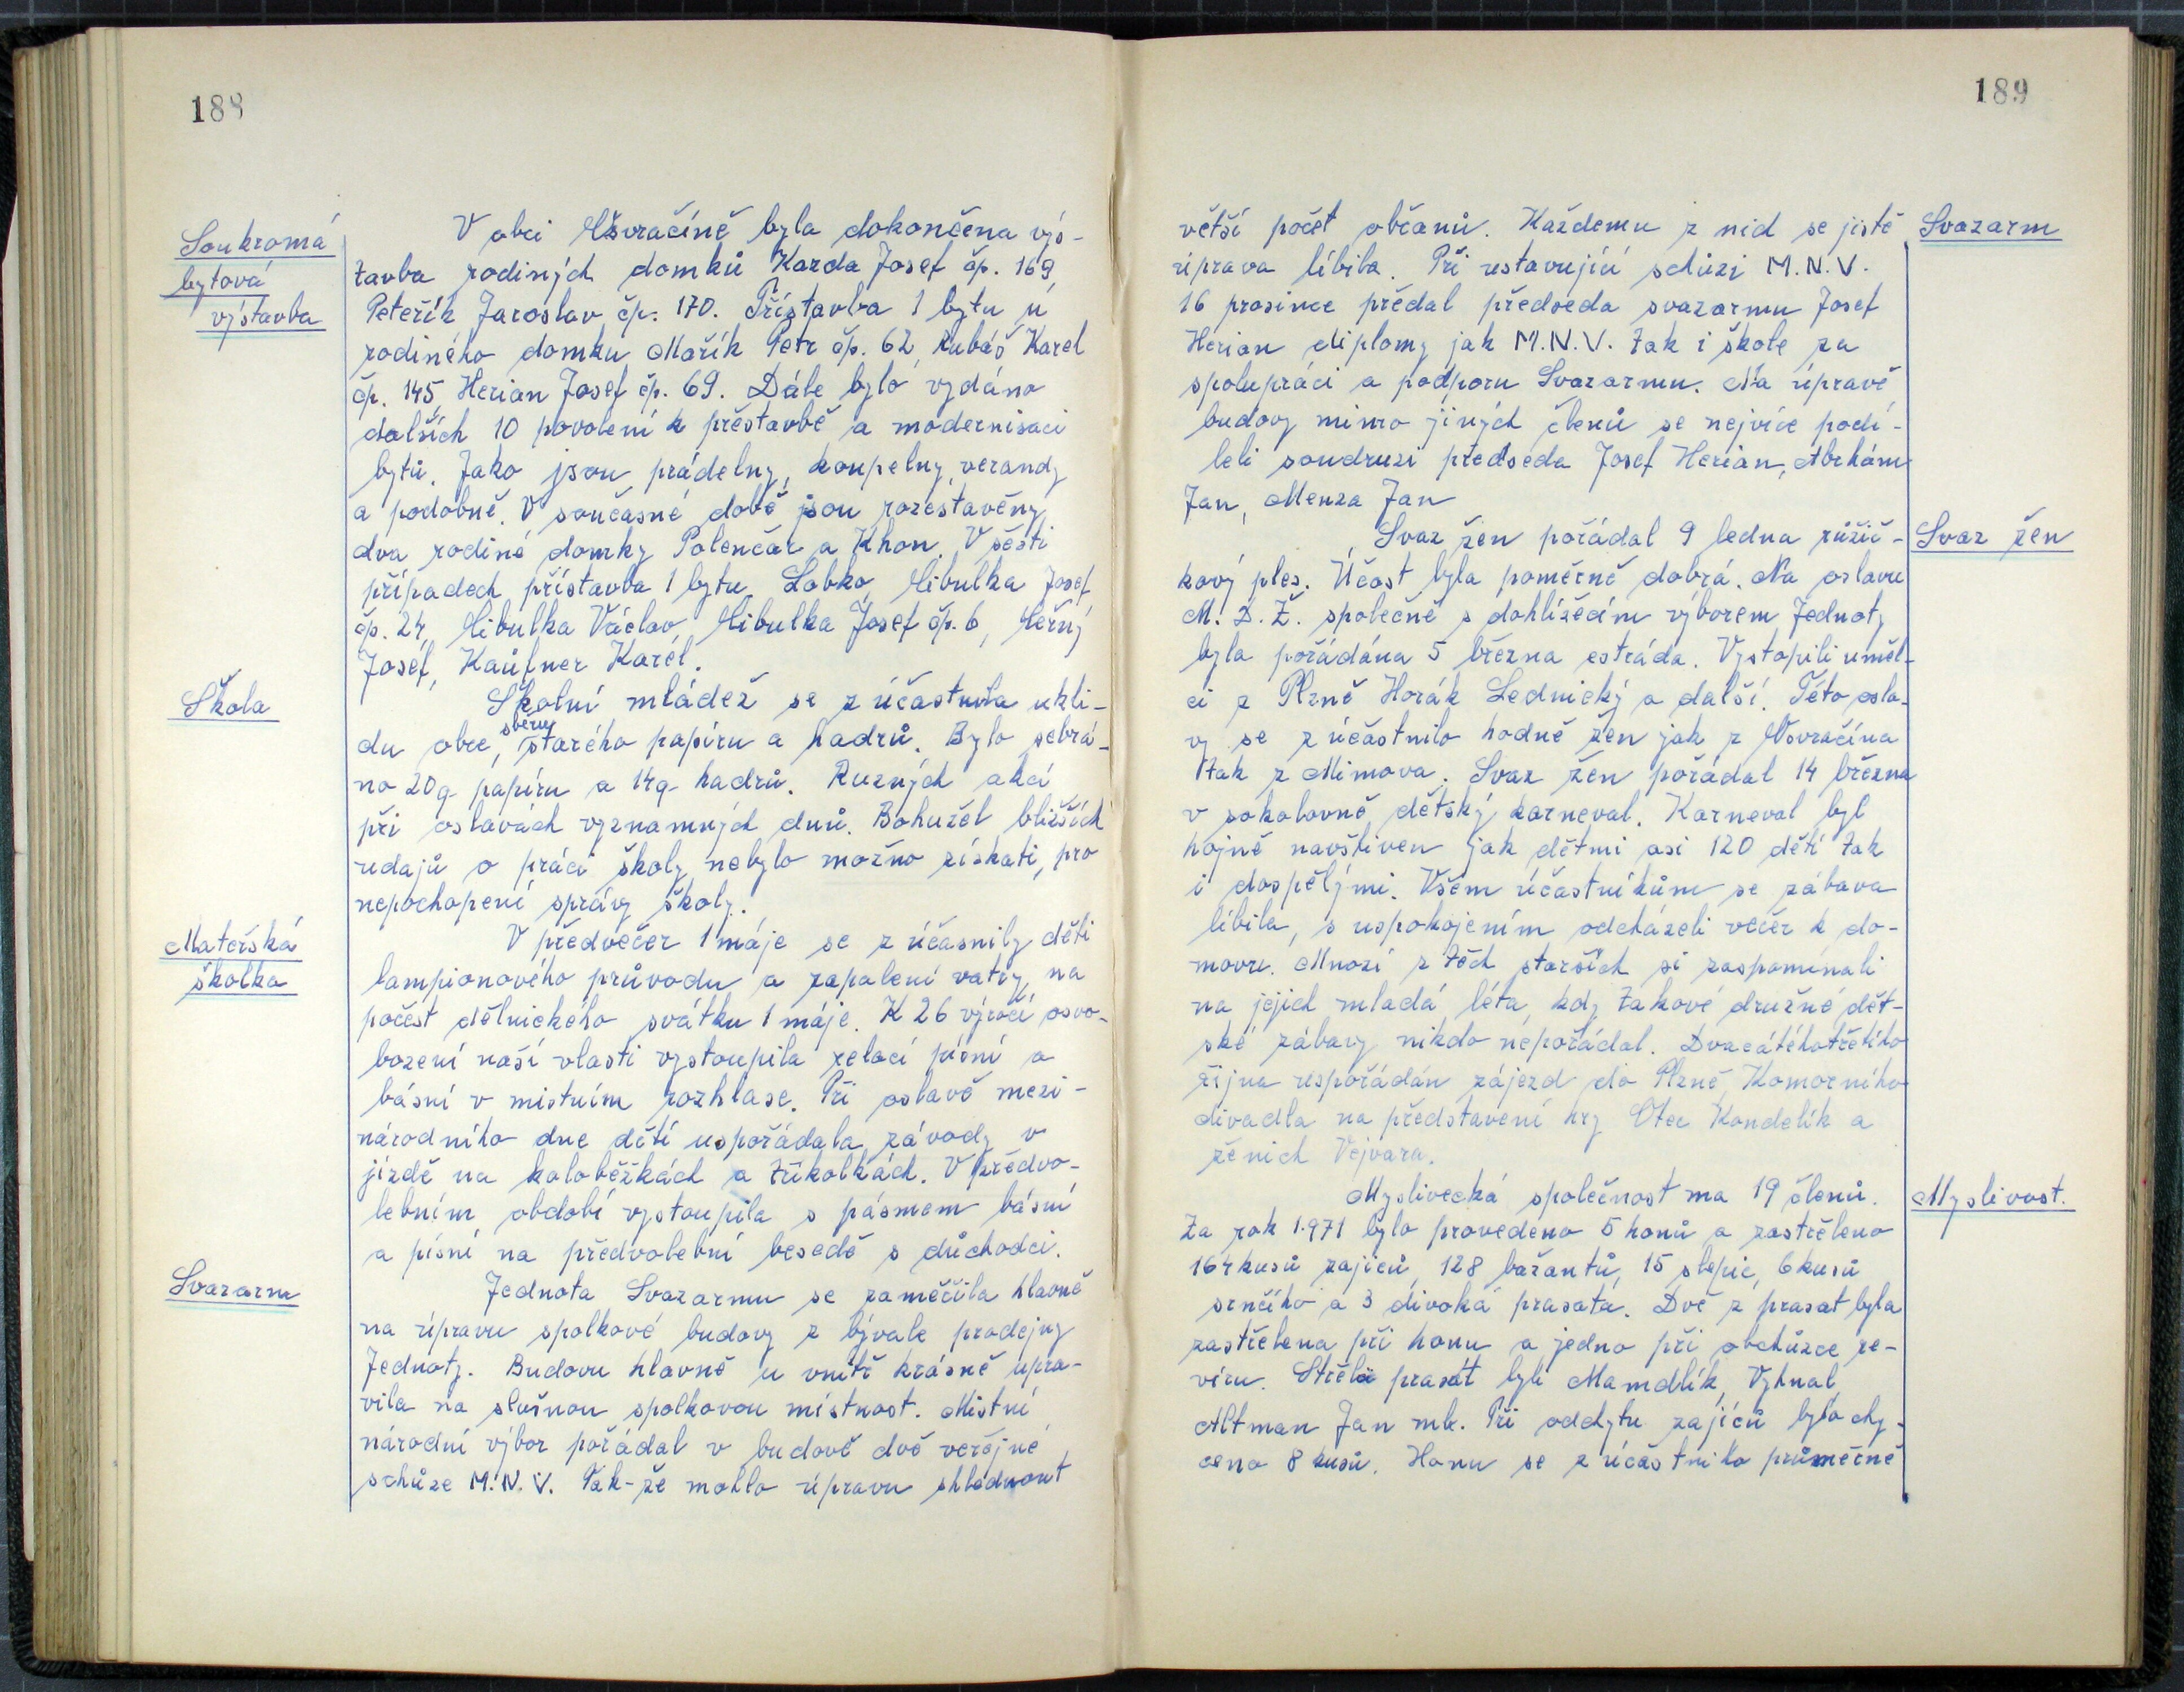 188
Soukromá
bytová
výstavba
V obci Všvračíně byla dokončena výs-
tavba rodiných domků Kazda Josef čp. 169,
Peteřík Jaroslav čp. 170. Přístavba 1 bytu u
rodiného domku Mařík Petr čp. 62, Kubáš Karel
čp. 145, Herian Josef čp. 69. Dále bylo vydáno
dalších 10 povolení k přestavbě a modernisaci
bytů. Jako jsou prádelny, koupelny, verandy
a podobně. V současné době jsou rozestavěny
dva rodiné domky Polenčár a Khon. V šesti
případech přístavba 1 bytu Lobko, Cibulka Josef
čp. 24, Cibulka Václav, Cibulka Josef čp. 6, Černý
Josef, Kaufner Karel.
Škola
Školní mládež se zúčastnila ukli-
du obce, sběru starého papíru a hadrů. Bylo sebrá-
no 20q papíru a 14q hadrů. Ruzných akcí
při oslavách významných dnů. Bohužel bližších
udajů o práci školy nebylo možno získati, pro
nepochopení správy školy.
Mateřská
školka
V předvečer 1 máje se zúčasnily děti
lampionového průvodu a zapalení vatry na
počest dělnického svátku 1 máje. K 26 výročí osvo-
bození naší vlasti vystoupila relací písní a
básní v mistním rozhlase. Při oslavě mezi-
národního dne dětí uspořádala závody v
jízdě na koloběžkách a tříkolkách. V předvo-
lebním období vystoupila s pásmem básní
a písní na předvolební besedě s důchodci.
Svazarm
Jednota Svazarmu se zaměřila hlavně
na úpravu spolkové budovy z bývale prodejny
Jednoty. Budovu hlavně u vnitř krásně upra-
vila na slušnou spolkovou místnost. Mistní
národní výbor pořádal v budově dvě veřejné
schůze M.N.V. Tak-že mohlo úpravu shlednout
189
větší počet občanů. Každemu z nid se jistě
úprava líbila. Při ustavující schůzi M.N.V.
16 prosince předal předseda svazarmu Josef
Herian diplomy jak M.N.V. tak i škole za
spolupráci a podporu Svazarmu. Na úpravě
budovy mimo jiných členů se nejvíce podí-
leli soudruzi předseda Josef Herian, Abrhám
Jan, Menza Jan
Svazarm
Svaz žen
Svaz žen pořádal 9 ledna růžič-
kový ples. Účast byla poměrně dobrá. Na oslavu
M.D.Ž. společně s dohlížecím výborem Jednoty
byla pořádána 5 března estráda. Vystopili uměl-
ci z Plzně Horák Lednický a další. Této osla-
vy se zúčastnilo hodně žen jak z Všvračína
tak z Mimova. Svaz žen pořádal 14 března
v sokolovně dětský karneval. Karneval byl
hojně navštiven jak dětmi asi 120 dětí tak
i dospělými. Všem účastníkům se zábava
líbila, s uspokojením odcházeli večer k do-
movu. Mnozí z těch starších si zaspomínali
na jejich mladá léta, kdy takové družné dět-
ské zábavy nikdo nepořádal. Dvacátéhotřetího
října uspořádán zájezd do Plzně, Komorního
divadla na představení hry Otec Kondelík a
ženich Vejvara.
Myslivost.
Myslivecká společnost ma 19 členů.
Za rok 1.971 bylo provedeno 5 honů a zastřeleno
164 kusů zajíců, 128 bažantů, 15 slepic, 6 kusů
srnčího a 3 divoká prasata. Dvě z prasat byla
zastřelena při honu a jedno při obchůzce re-
víru. Střelci prasat byli Mamdlík, Vyhnal,
Altman Jan ml. Při odchytu zajíců bylo chy-
ceno 8 kusů. Honu se zúčastnilo průměrně